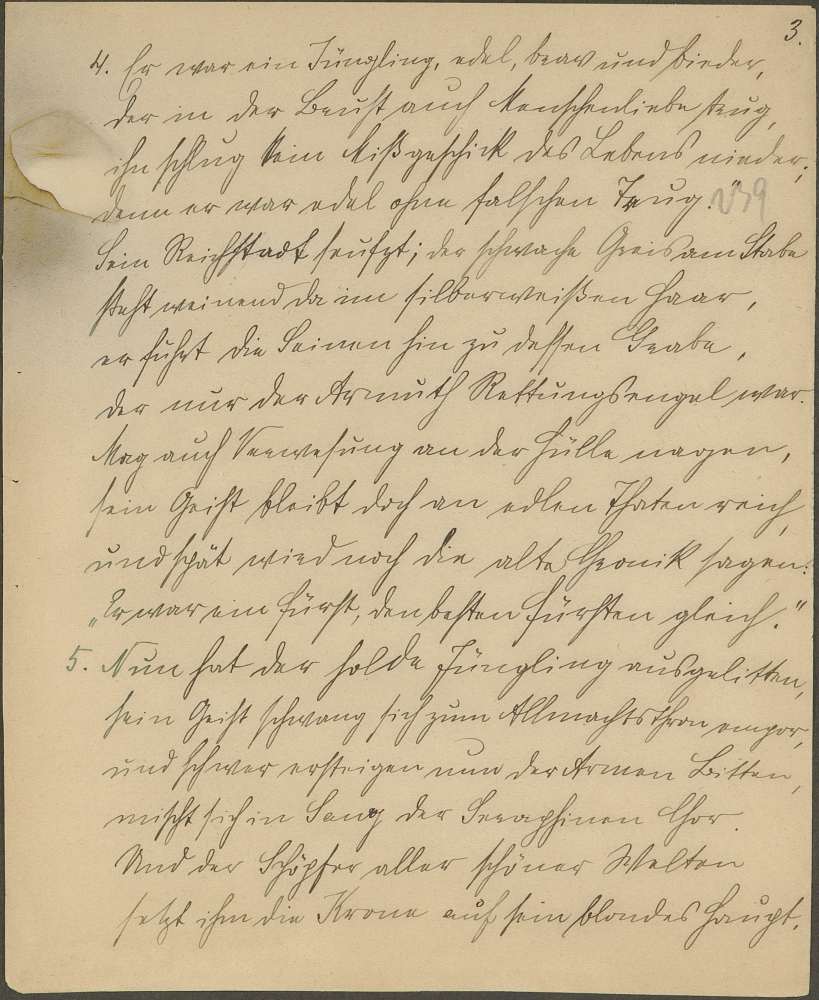 3.
4. Er war ein Jüngling, edel, brav und bieder,
der in der Brust auch Menschenliebe trug,
ihn schlug kein Mißgeschick des Lebens nieder;
denn er war edel ohne falschen Trug."
Sein Reichstadt seufzt; der schwache Greis am Stabe
steht weinend da im silberweißen Haar,
er führt die Seinen hin zu dessen Grabe,
der nur der Armuth Rettungsengel war.
Mag auch Verwesung an der Hülle nagen,
sein Geist bleibt doch an edlen Thaten reich,
und spät wird noch die alte Chronik sagen:
„Er war ein Fürst, den besten Fürsten gleich."
5. Nun hat der holde Jüngling ausgelitten,
sein Geist schwang sich zum Allmachtsthron empor,
und schwer ersteigen nun der Armen Bitten,
mischt sich in Sang der Seraphinen Chor.
Und der Schöpfer aller schöner Welten
setzt ihm die Krone auf sein blondes Haupt.